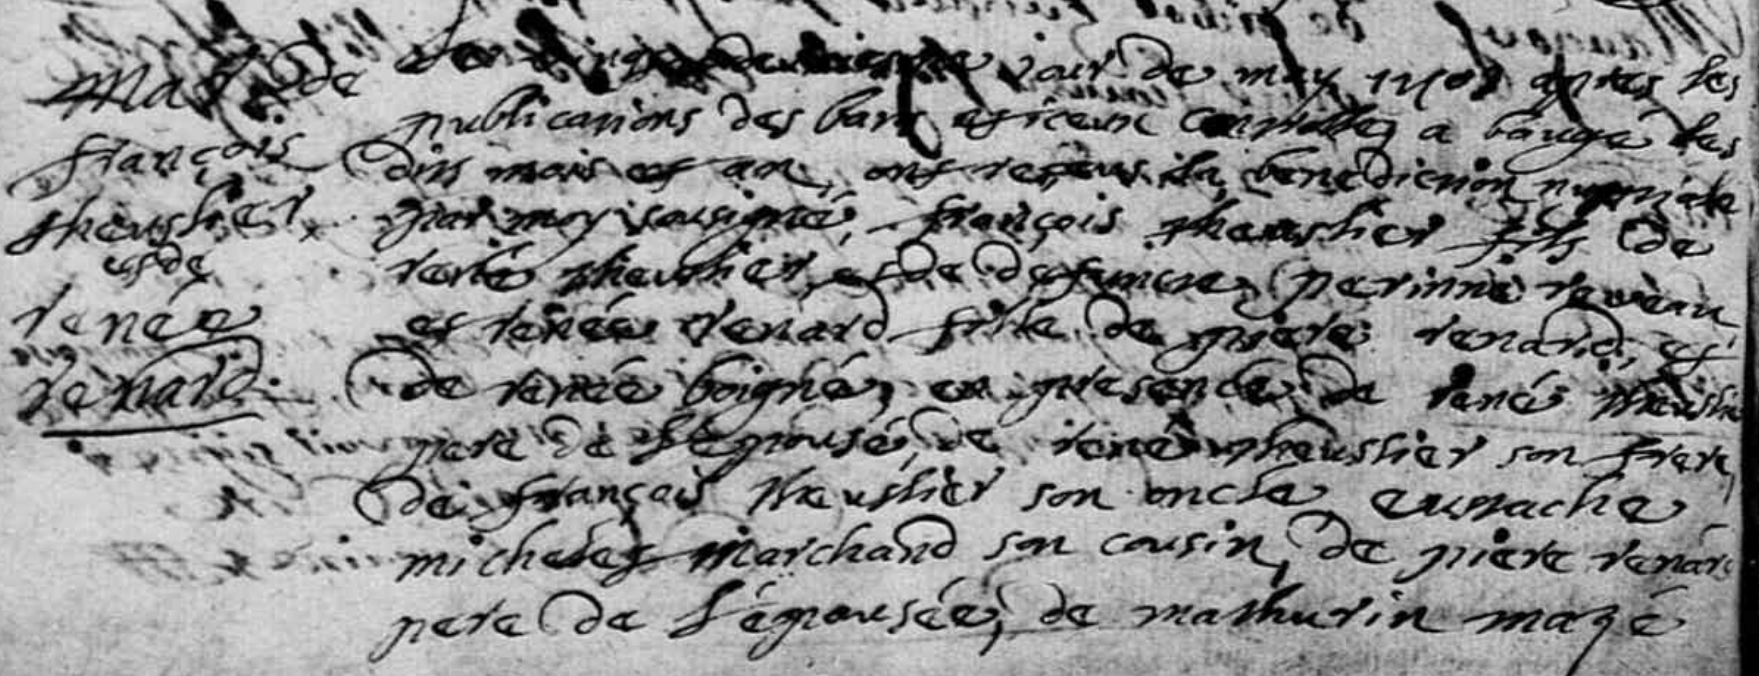 Mar. de
françois
theushier
et de
renée
renard.
Le vingt deuxiesme jour de may 1708 apres les
publications des bans et iceux a baugé les
dits mois et an, ont receus la benediction nuptiale
par moy soussigné, françois theushier fils de
rené theushier, et de defuncte perinne reveau
et renée renard fille de piere renard, et
de renée boigné, en presence de rené theushier
pere de l'épousé, de rené theushier son frere,
de françois theushier son oncle, eustache
michelet marchand son cousin, de piere renard
pere de l'épousée, de mathurin mazé